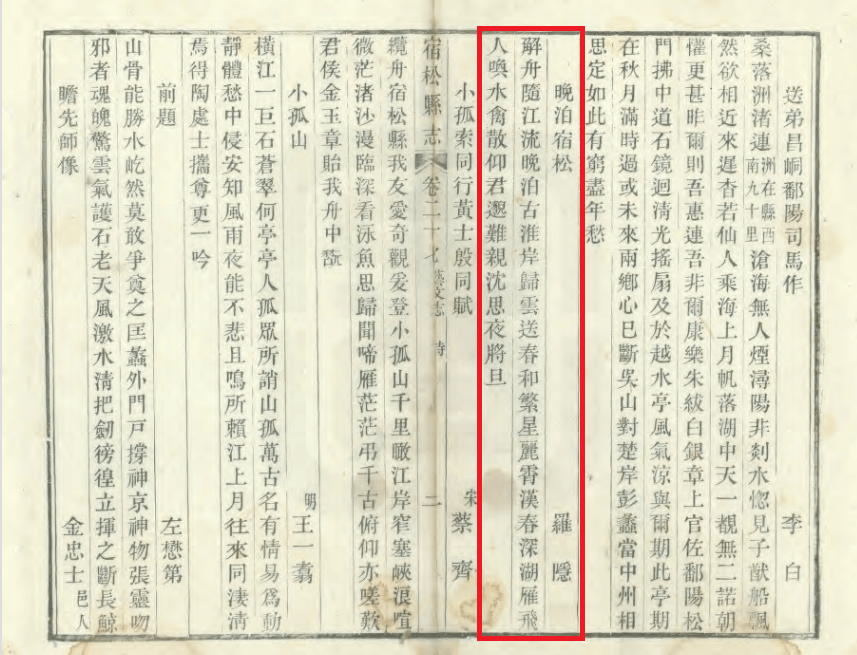 送弟昌峒鄱陽司馬作 李白
桑落洲渚連洲在縣西南九十里滄海無人煙潯陽非剡水惚見子猷船飄
然欲相近來遲杳若仙人乘海上月帆落湖中天一覩無二諾朝
懽更甚昨爾則吾惠連吾非爾康樂朱紱白銀章上官佐鄱陽松
門拂中道石鏡迴清光搖扇及於越水亭風氣涼與爾期此亭期
在秋月滿時過或未來兩鄉心已斷吳山對楚岸彭蠡當中州相
思定如此有窮盡年愁
晚泊宿松 羅隱
解舟隨江流晚泊古淮岸歸雲送春和繁星麗霄漢春深湖雁飛
人喚水禽散仰君邈難親沈思夜將旦
小孤索同行黃士殷同賦 宋 蔡齊
宿松縣志 卷二十七 藝文志 詩 二
纜舟宿松縣我友愛奇觀爰登小孤山千里瞰江岸窄塞峽浪喧
微茫渚沙漫臨深看泳魚思歸聞啼雁茫茫弔千古俯仰亦嗟歎
君侯金玉章貽我舟中翫
小孤山 明 王一翥
橫江一巨石蒼翠何亭亭人孤眾所誚山孤萬古名有情易爲動
靜體愁中侵安知風雨夜能不悲且鳴所賴江上月往來同淒清
焉得陶處士攜尊更一吟
前題 左懋第
山骨能勝水屹然莫敢爭奠之匡蠡外門戸撐神京神物張靈吻
邪者魂魄驚雲氣護石老天風激水清把劒徬徨立揮之斷長鯨
瞻先師像 金忠士 邑人